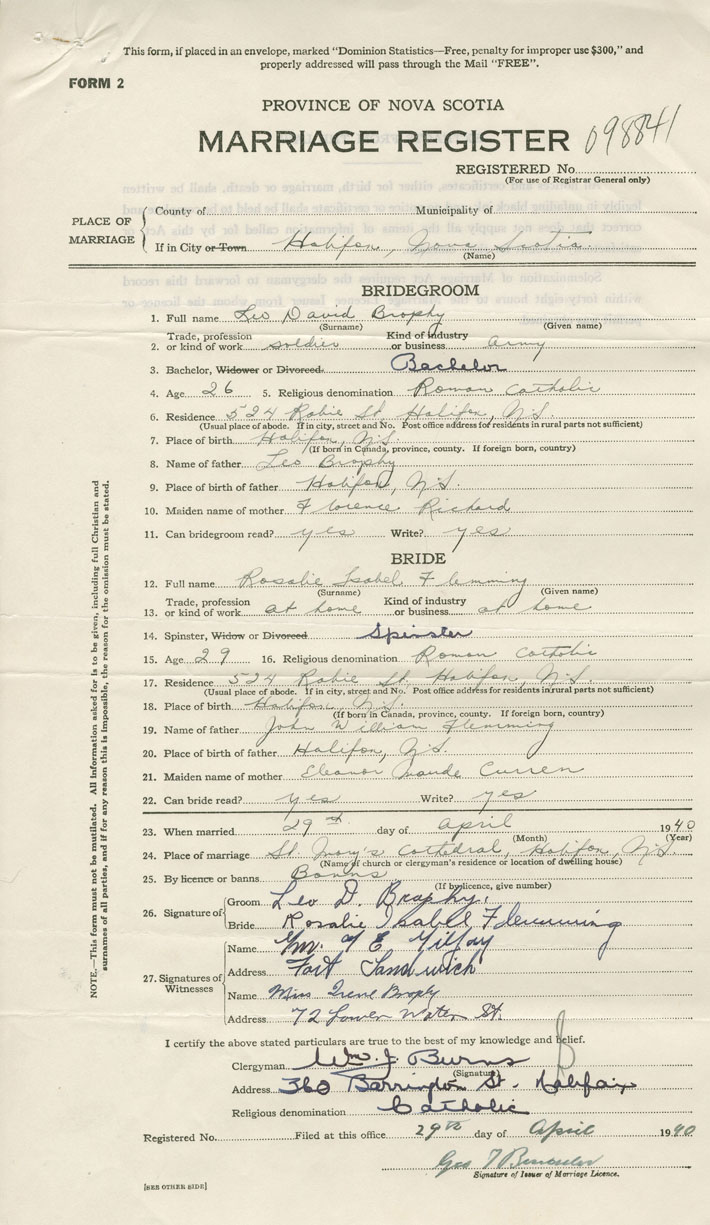 This form, if placed in an envelope, marked "Dominion Statistics—Free, penalty for improper use $300," and
properly addressed will pass through the Mail "FREE".
FORM 2
PROVINCE OF NOVA SCOTIA
MARRIAGE REGISTER 098841
REGISTERED No.
(For use of Registrar General only)
PLACE OF MARRIAGE
County of Municipality of
If in City or Town Halifax, Nova Scotia.
(Name)
BRIDEGROOM
1. Full name Leo David Brophy
(Surname) (Given name)
2. Trade, profession or kind of work soldier Kind of industry or business army
3. Bachelor, Widower or Divorced. Bachelor
4. Age 26 5. Religious denomination Roman Catholic
6. Residence 524 Robie St. Halifax, N.S.
(Usual place of abode. If in city, street and No. Post office address for residents in rural parts not sufficient)
7. Place of birth Halifax, N.S.
(If born in Canada, province, county. If foreign born, country)
8. Name of father Leo Brophy
9. Place of birth of father Halifax, N.S.
10. Maiden name of mother Florence Richard
11. Can bridegroom read? yes Write? yes
BRIDE
12. Full name Rosalie Isabel Flemming
(Surname) (Given name)
13. Trade, profession or kind of work at home Kind of industry or business at home
14. Spinster, Widow or Divorced Spinster
15. Age 29 16. Religious denomination Roman Catholic
17. Residence 524 Robie St. Halifax, N.S.
(Usual place of abode. If in city, street and No. Post office address for residents in rural parts not sufficient)
18. Place of birth Halifax, N.S.
(If born in Canada, province, county. If foreign born, country)
19. Name of father John William Flemming
20. Place of birth of father Halifax, N.S.
21. Maiden name of mother Eleanor Maude Curren
22. Can bride read? yes Write? yes
23. When married 29th day of April 1940
(Month) (Year)
24. Place of marriage St. Mary's Cathedral, Halifax, N.S.
(Name of church or clergyman's residence or location of dwelling house)
25. By licence or banns Banns
(If by licence, give number)
26. Signature of
Groom Leo D. Brophy.
Bride Rosalie Isabel Flemming
27. Signatures of Witnesses
Name
Address Fort Sandwich
Name Miss Irene Brophy
Address 72 Lower Water St.
I certify the above stated particulars are true to the best of my knowledge and belief.
Clergyman Wm. J. Burns
(Signature)
Address 360 Barrington St. Halifax
Religious denomination Catholic
Registered No. Filed at this office 29th day of April 1940
Geo T
Signature of Issuer of Marriage Licence.
[SEE OTHER SIDE]
NOTE.—This form must not be mutilated. All information asked for is to be given, including full Christian and
surnames of all parties, and if for any reason this is impossible, the reason for the omission must be stated.